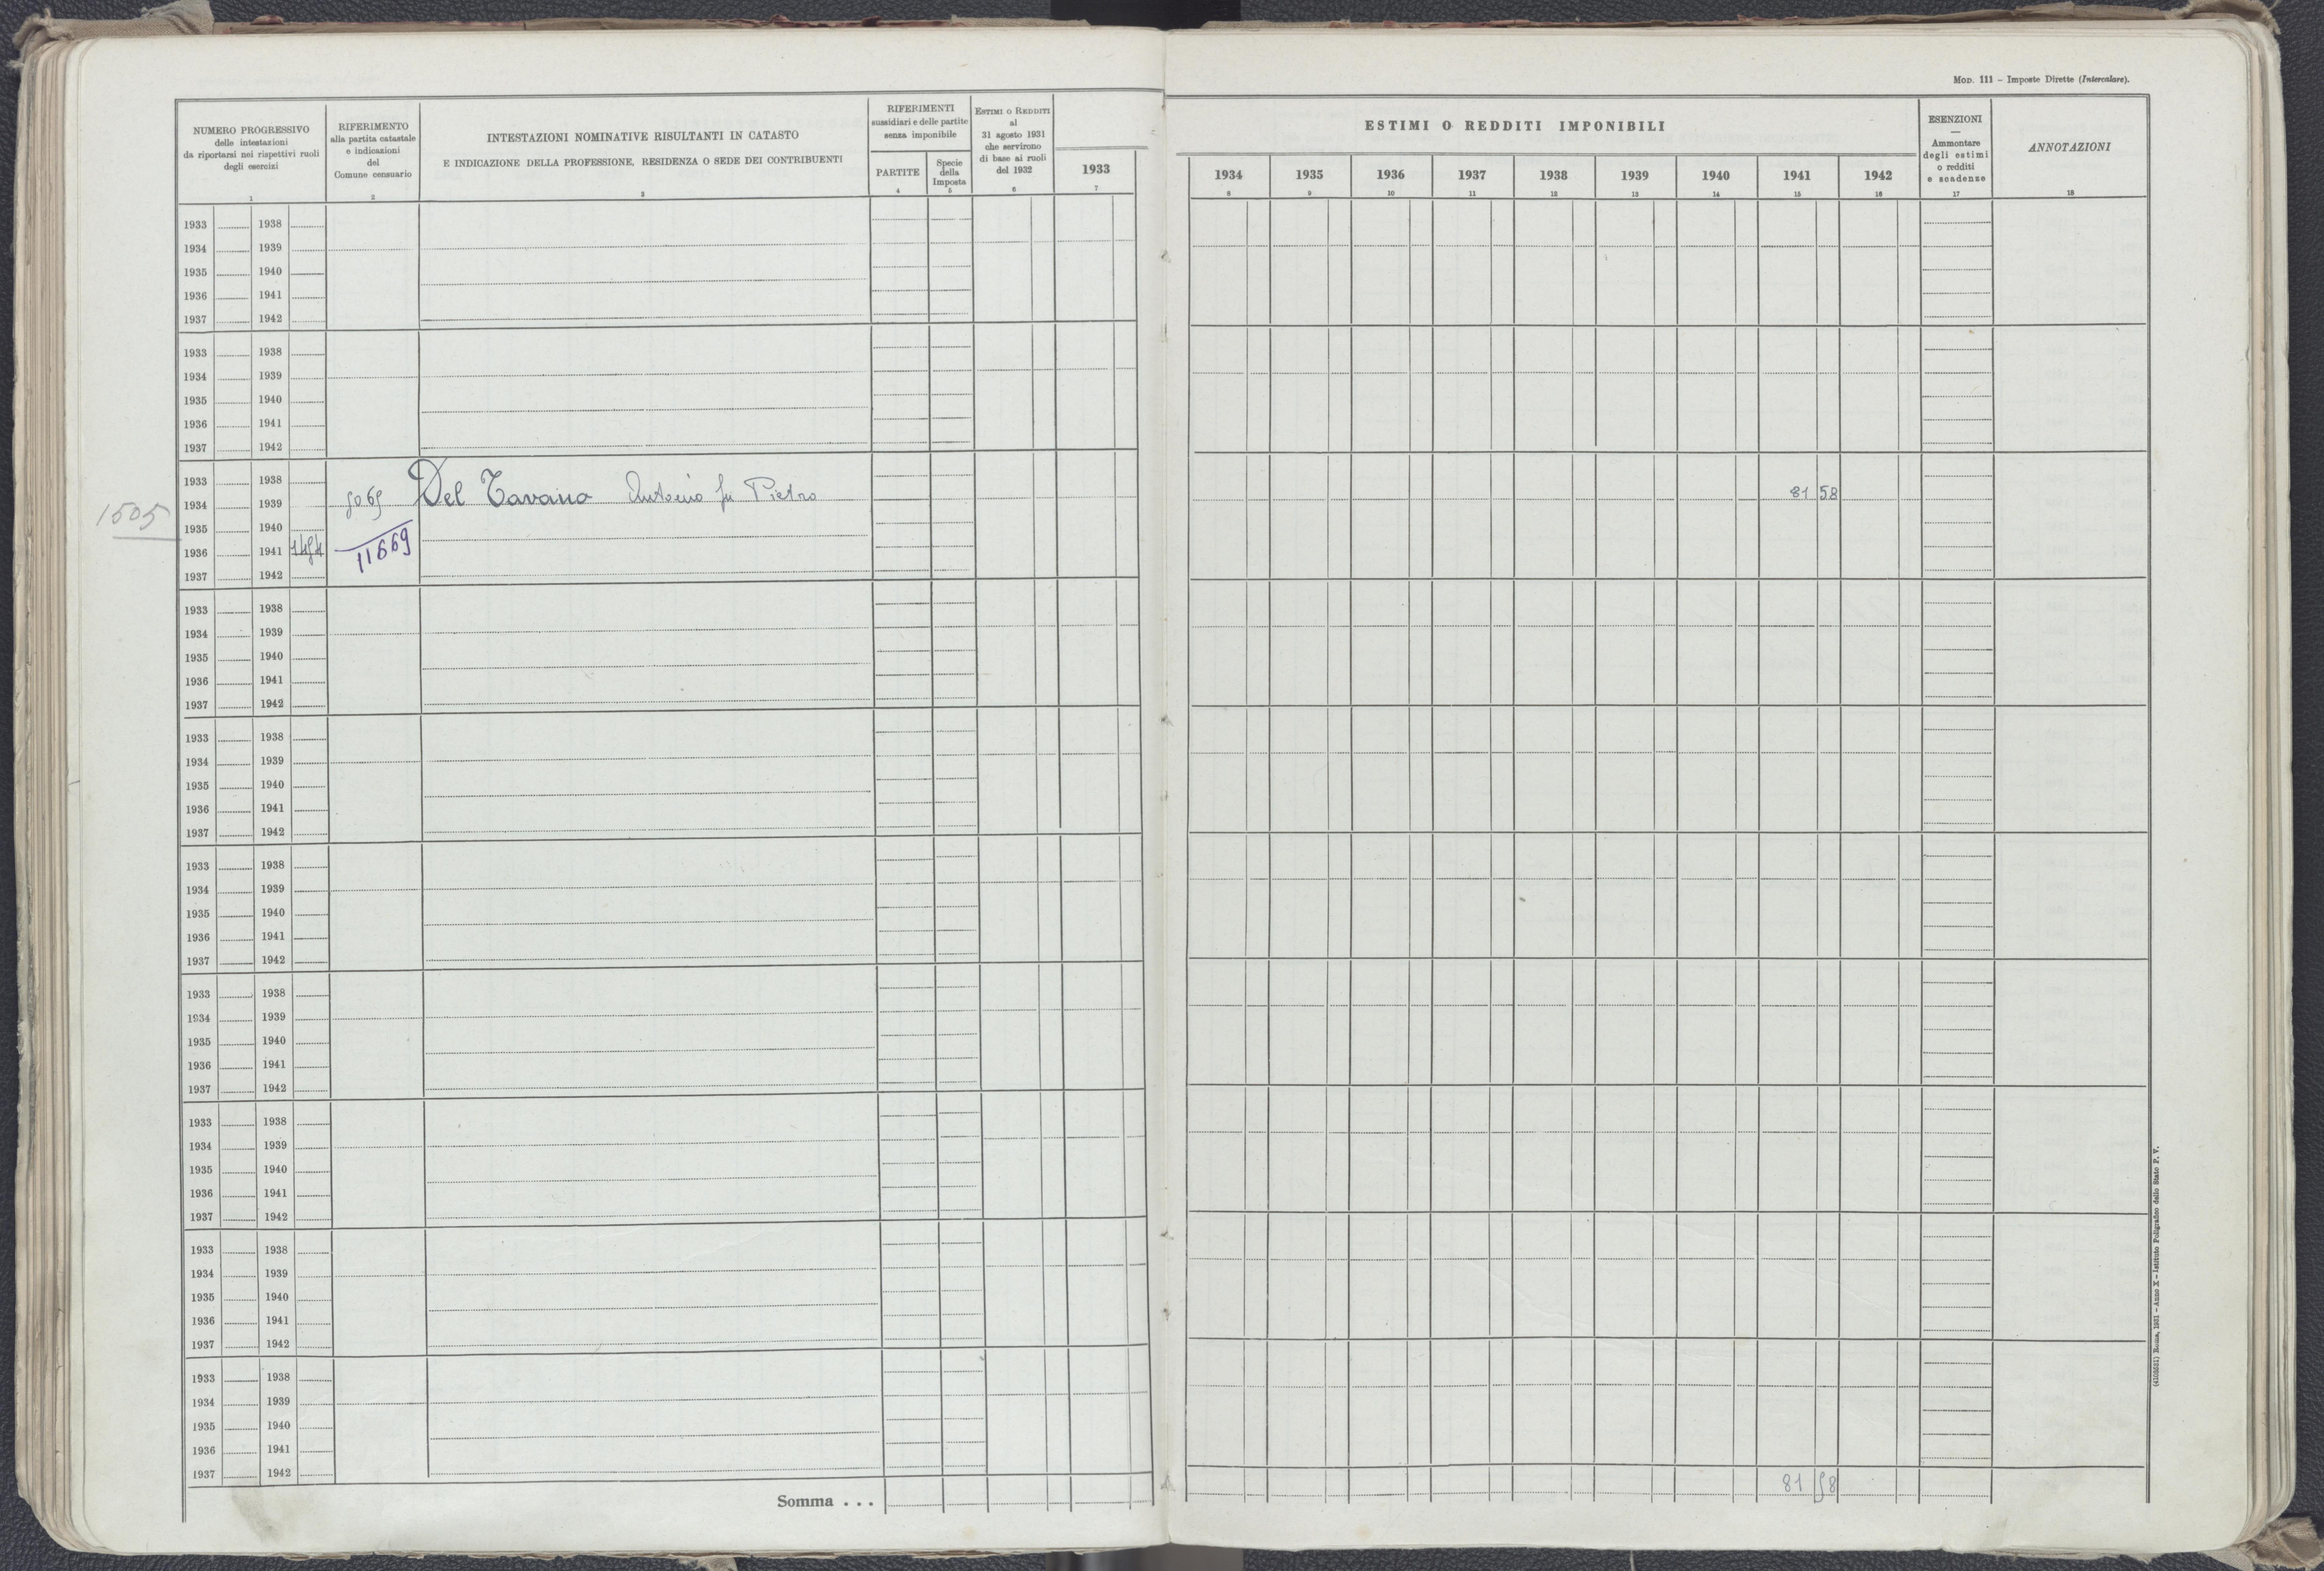 MOD. 111 – Imposte Dirette (Intercalare).
NUMERO PROGRESSIVO
delle intestazioni
da riportarsi nei rispettivi ruoli
degli esercizi
1
RIFERIMENTO
alla partita catastale
e indicazioni
del
Comune censuario
2
INTESTAZIONI NOMINATIVE RISULTANTI IN CATASTO
E INDICAZIONE DELLA PROFESSIONE, RESIDENZA O SEDE DEI CONTRIBUENTI
3
RIFERIMENTI
sussidiari e delle partite
senza imponibile
PARTITE
4
Specie
della
Imposta
5
ESTIMI O REDDITI
al
31 agosto 1931
che servirono
di base ai ruoli
del 1932
6
1933
7
ESTIMI O REDDITI IMPONIBILI
1934 1935 1936 1937 1938 1939 1940 1941 1942
8 9 10 11 12 13 14 15 16
ESENZIONI
—
Ammontare
degli estimi
o redditi
e scadenze
17
ANNOTAZIONI
18
1933 1938
1934 1939
1935 1940
1936 1941
1937 1942
1933 1938
1934 1939
1935 1940
1936 1941
1937 1942
1933 1938
1934 1939 Del Tavano Antonio fu Pietro 81 58
1505
1935 1940
1936 1941 11669
1937 1942
1933 1938
1934 1939
1935 1940
1936 1941
1937 1942
1933 1938
1934 1939
1935 1940
1936 1941
1937 1942
1933 1938
1934 1939
1935 1940
1936 1941
1937 1942
1933 1938
1934 1939
1935 1940
1936 1941
1937 1942
1933 1938
1934 1939
1935 1940
1936 1941
1937 1942
1933 1938
1934 1939
1935 1940
1936 1941
1937 1942
1933 1938
1934 1939
1935 1940
1936 1941
1937 1942
Somma . . . 81 58
Roma, 1931 – Anno X – Istituto Poligrafico dello Stato P. V.